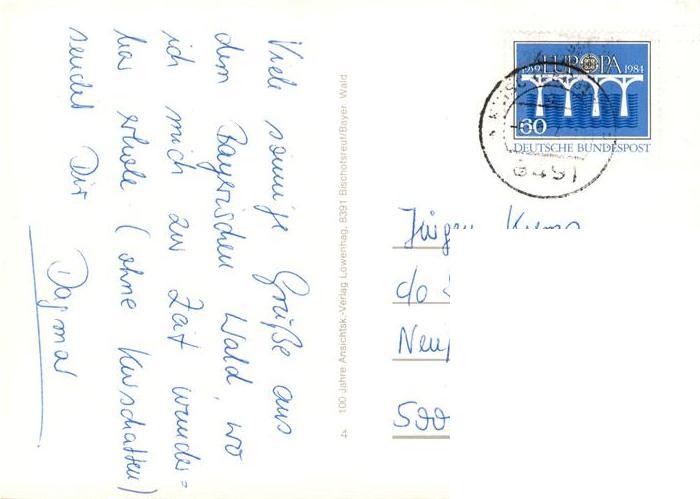 Viele sonnige Grüße aus
dem Bayerischen Wald, wo
ich mich zur Zeit wunder=
bar erhole (ohne Kurschatten)
sendet Dir
Dagmar
4 100 Jahre Ansichtsk.-Verlag Löwenhag, 8391 Bischofsreut/Bayer. Wald
1959 EUROPA 1984
60
DEUTSCHE BUNDESPOST
Jürgen
c/o